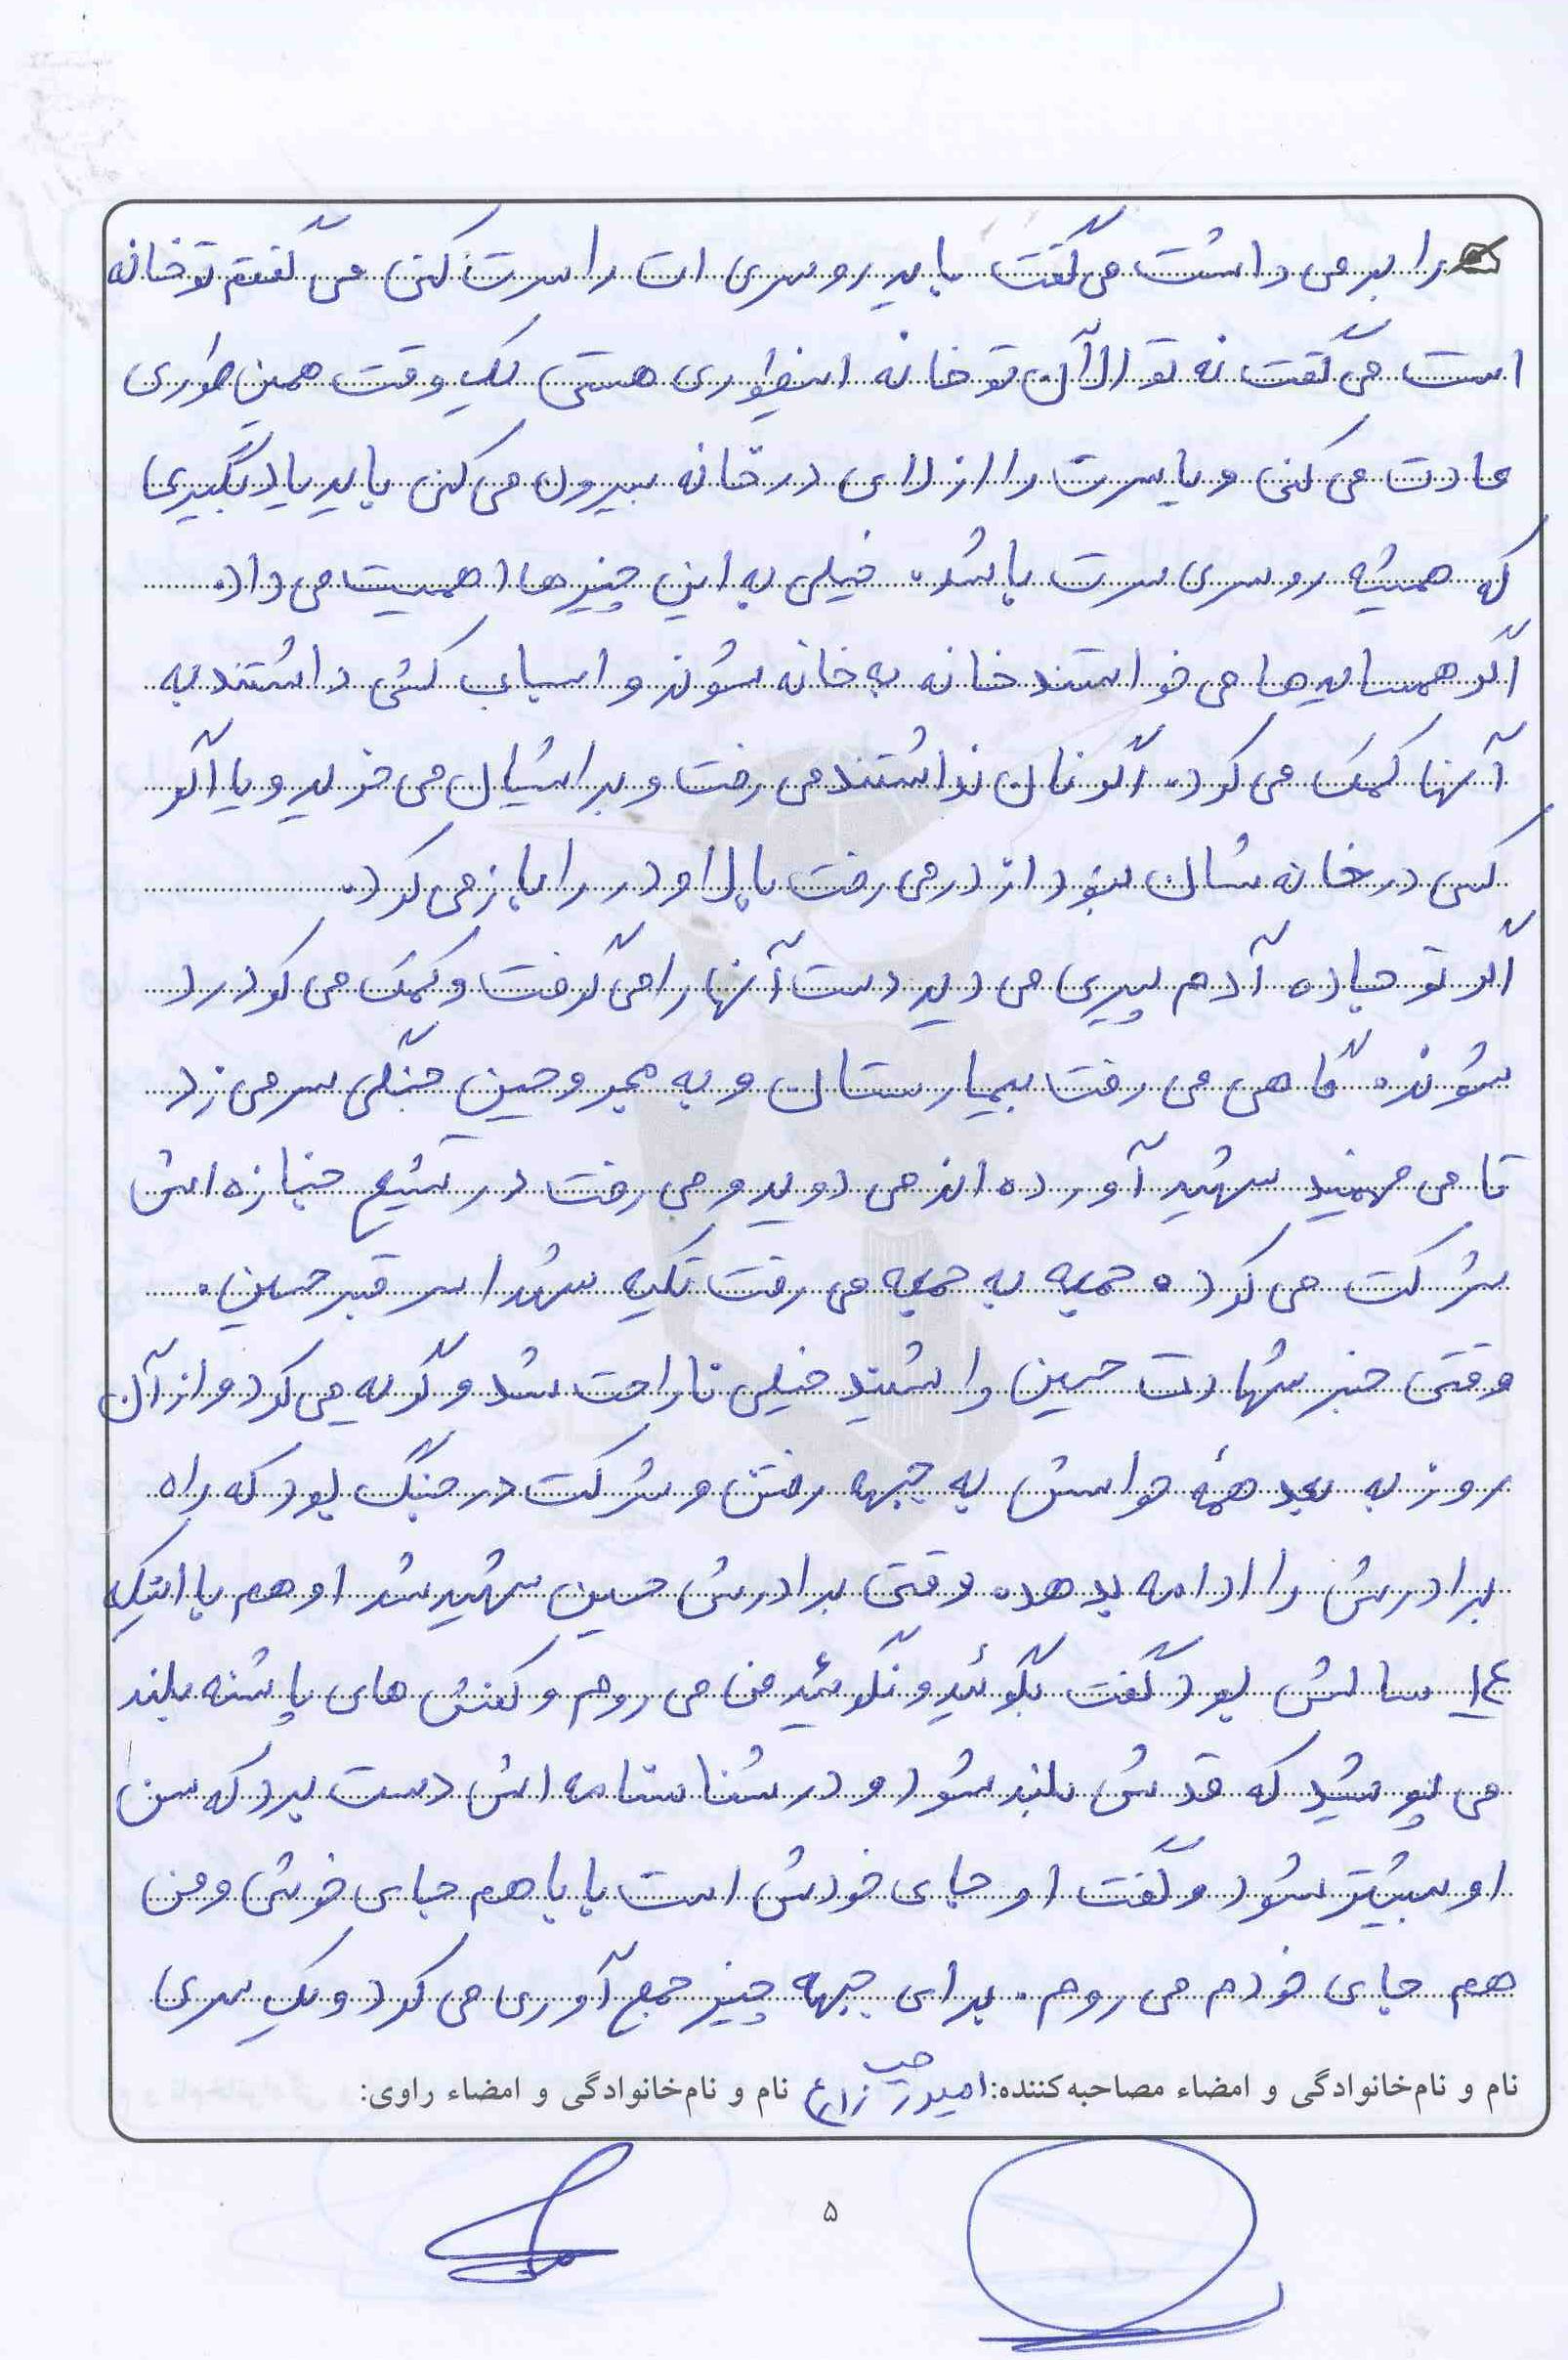 را بر می داشت می گفت باید روسری ات را سرت کنی می گفتم تو خانه
است می گفت نه تو الآن تو خانه اینطوری هستی یک وقت همین طوری
عادت می کنی و یا سرت را از لای در خانه بیرون می کنی باید یاد بگیری
که همیشه روسری سرت باشد. خیلی به این چیزها اهمیت می داد.
اگر همسایه ها می خواستند خانه به خانه شوند و اسباب کشی داشتند به
آنها کمک می کرد. اگر نان نداشتند می رفت و براشان می خرید و یا اگر
کسی در خانه شان نبود از در می رفت بالا و در را باز می کرد.
اگر تو جاده آدم پیری می دید دست آنها را می گرفت و کمک می کرد رد
شوند. گاهی می رفت بیمارستان و به مجروحین جنگی سر می زد
تا می فهمید شهید آورده اند می دوید و می رفت در تشیع جنازه اش
شرکت می کرد. جمعه به جمعه می رفت تکیه شهدا سر قبر حسین.
وقتی خبر شهادت حسین را شنید خیلی ناراحت شد و گریه می کرد و از آن
روز به بعد همهٔ حواسش به جبهه رفتن و شرکت در جنگ بود که راه
برادرش را ادامه بدهد. وقتی برادرش حسین شهید شد او هم با اینکه
۱۴ سالش بود گفت بگوئید و نگوئید من می روم و کفش های پاشنه بلند
می پوشید که قدش بلند شود و در شناسنامه اش دست برد که سن
او بیشتر شود و گفت او جای خودش است بابا هم جای خوش و من
هم جای خودم می روم. برای جبهه چیز جمع آوری می کرد و یک سری
نام و نام‌خانوادگی و امضاء مصاحبه‌کننده: نام و نام‌خانوادگی و امضاء راوی:
۵